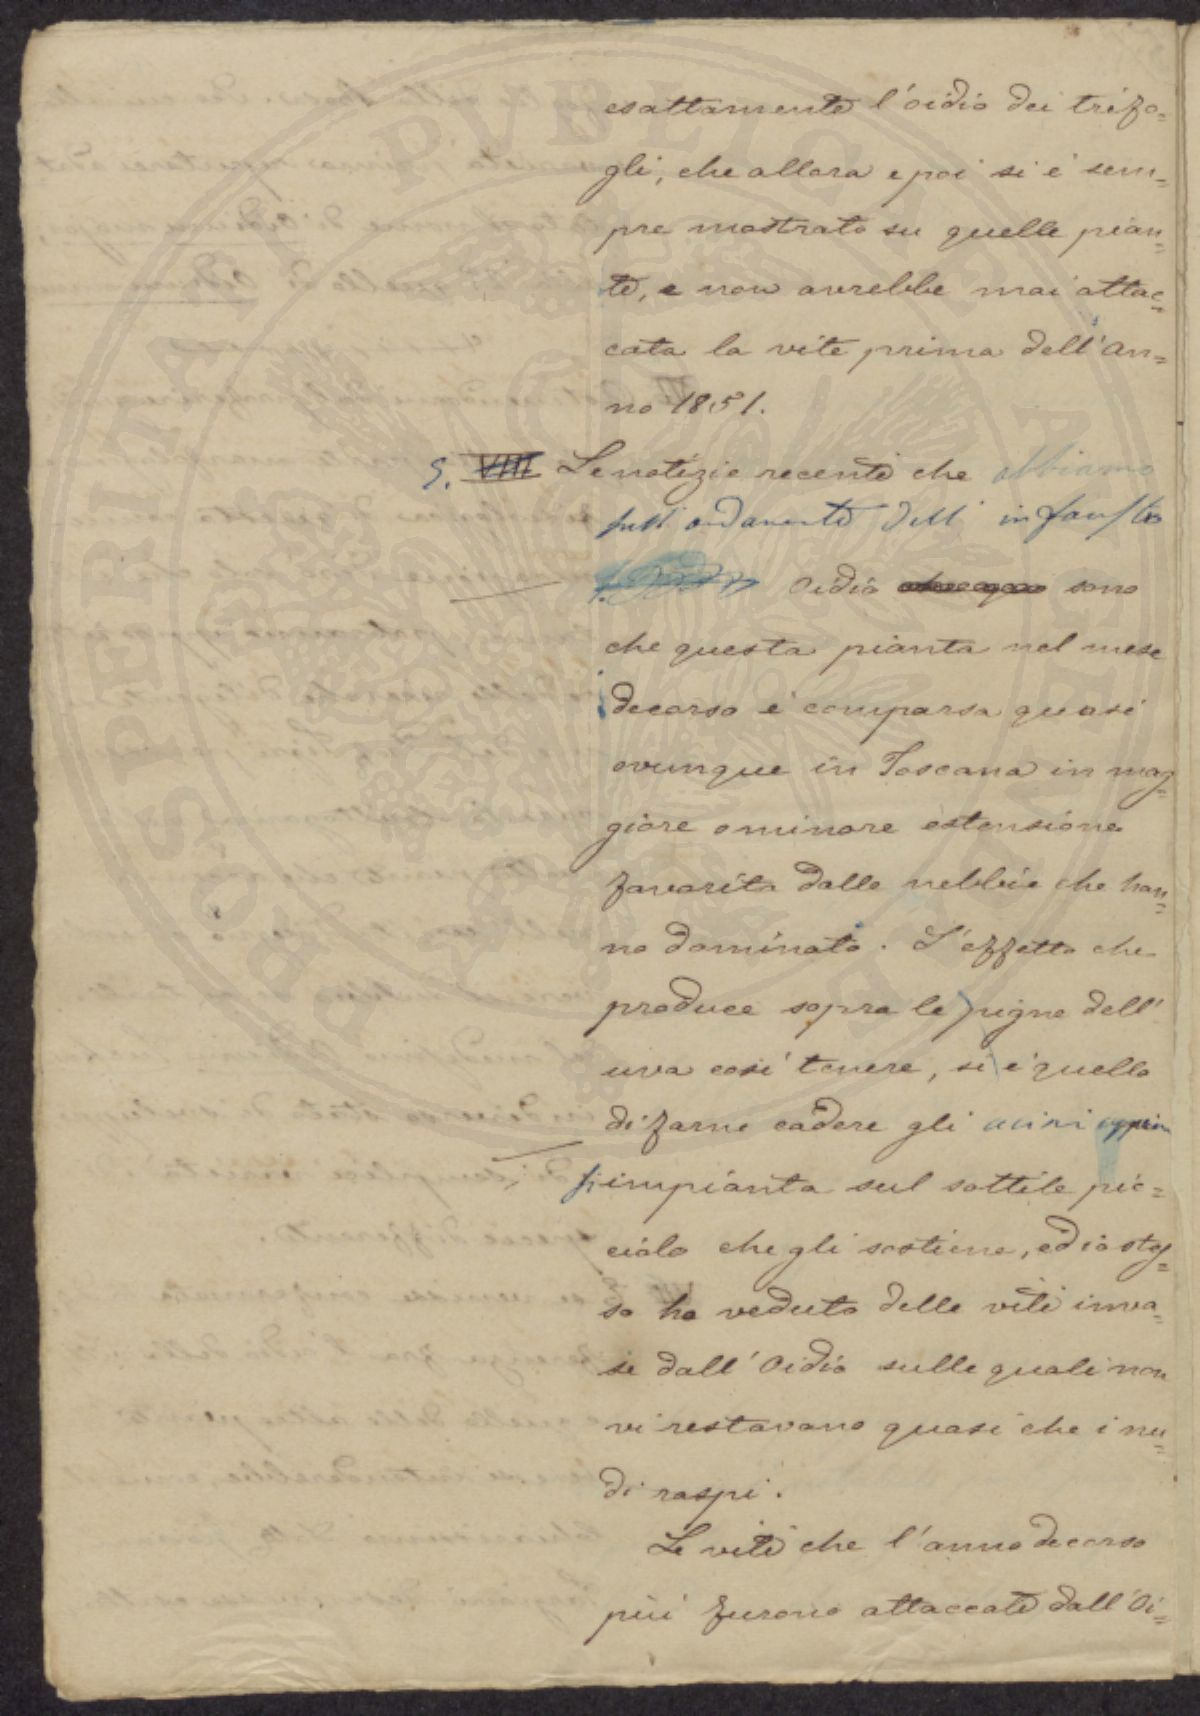 esattamente l'oidio dei trifo=
gli, che allora e poi si è sem=
pre mostrato su quelle pian=
te, e non avrebbe mai attac=
cata la vite prima dell'an=
no 1851.
5. VIII Le notizie recenti che abbiamo
sull'andamento dell' infausto
Oidio sono
che questa pianta nel mese
decorso è comparsa quasi
ovunque in Toscana in mag=
giore o minore estensione
favorita dalle nebbie che han=
no dominato. L'effetto che
produce sopra le pigne dell'
uva così tenere, si è quello
di farne cadere gli acini appena
impianta sul sottile pic=
ciolo che gli sostiene, ed io stes=
so ho veduto delle viti inva=
se dall'Oidio sulle quali non
vi restavano quasi che i nu=
di raspi.
Le viti che l'anno decorso
più furono attaccate dall'Oi=
PVBLICAE
PROSPERITATI